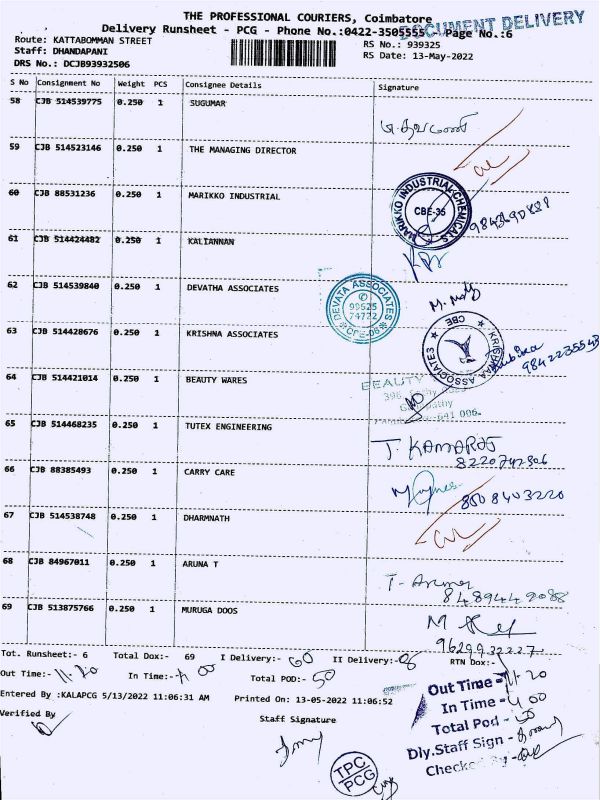 THE PROFESSIONAL COURIERS, Coimbatore
DOCUMENT DELIVERY
Delivery Runsheet - PCG - Phone No.:0422-3505555 - Page No.:6
Route: KATTABOMMAN STREET
RS No.: 939325
Staff: DHANDAPANI
RS Date: 13-May-2022
DRS No.: DCJB93932506
S No Consignment No Weight PCS Consignee Details Signature
58 CJB 514539775 0.250 1 SUGUMAR
59 CJB 514523146 0.250 1 THE MANAGING DIRECTOR
60 CJB 88531236 0.250 1 MARIKKO INDUSTRIAL
MARIKKO INDUSTRIAL CHEMICALS
CBE-35
61 CJB 514424482 0.250 1 KALIANNAN
62 CJB 514539840 0.250 1 DEVATHA ASSOCIATES
DEVATA ASSOCIATES
99525
74722
CBE-06
63 CJB 514428676 0.250 1 KRISHNA ASSOCIATES
KRISHNAA ASSOCIATES
CBE
9842235543
64 CJB 514421014 0.250 1 BEAUTY WARES
BEAUTY
641 006.
65 CJB 514468235 0.250 1 TUTEX ENGINEERING
T. KAMARAJ
8220742506
66 CJB 88385493 0.250 1 CARRY CARE
8508403220
67 CJB 514538748 0.250 1 DHARMNATH
68 CJB 84967011 0.250 1 ARUNA T
T- Aruna
8489442088
69 CJB 513875766 0.250 1 MURUGA DOOS
9629932227
Tot. Runsheet:- 6 Total Dox:- 69 I Delivery:- 60 II Delivery:- RTN Dox:-
Out Time:- 11.20 In Time:- 4 00 Total POD:- 50
Entered By :KALAPCG 5/13/2022 11:06:31 AM Printed On: 13-05-2022 11:06:52
Verified By
Staff Signature
Out Time - 11.20
In Time - 4 00
Total Pod -
Dly.Staff Sign -
Checked By -
TPC
PCG